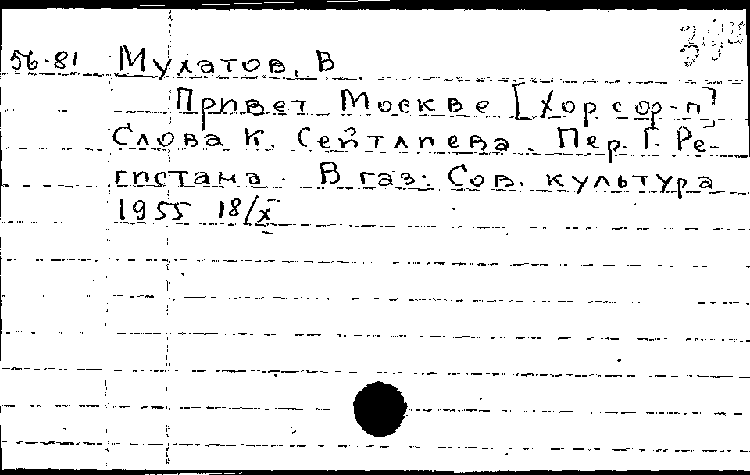 56-81 Мулатов, В
Привет Москве [Хор с ор-п]
Слова К. Сейтлиева. Пер. Г. Ре-
гистана. В газ: Сов. культура
1955 18/X